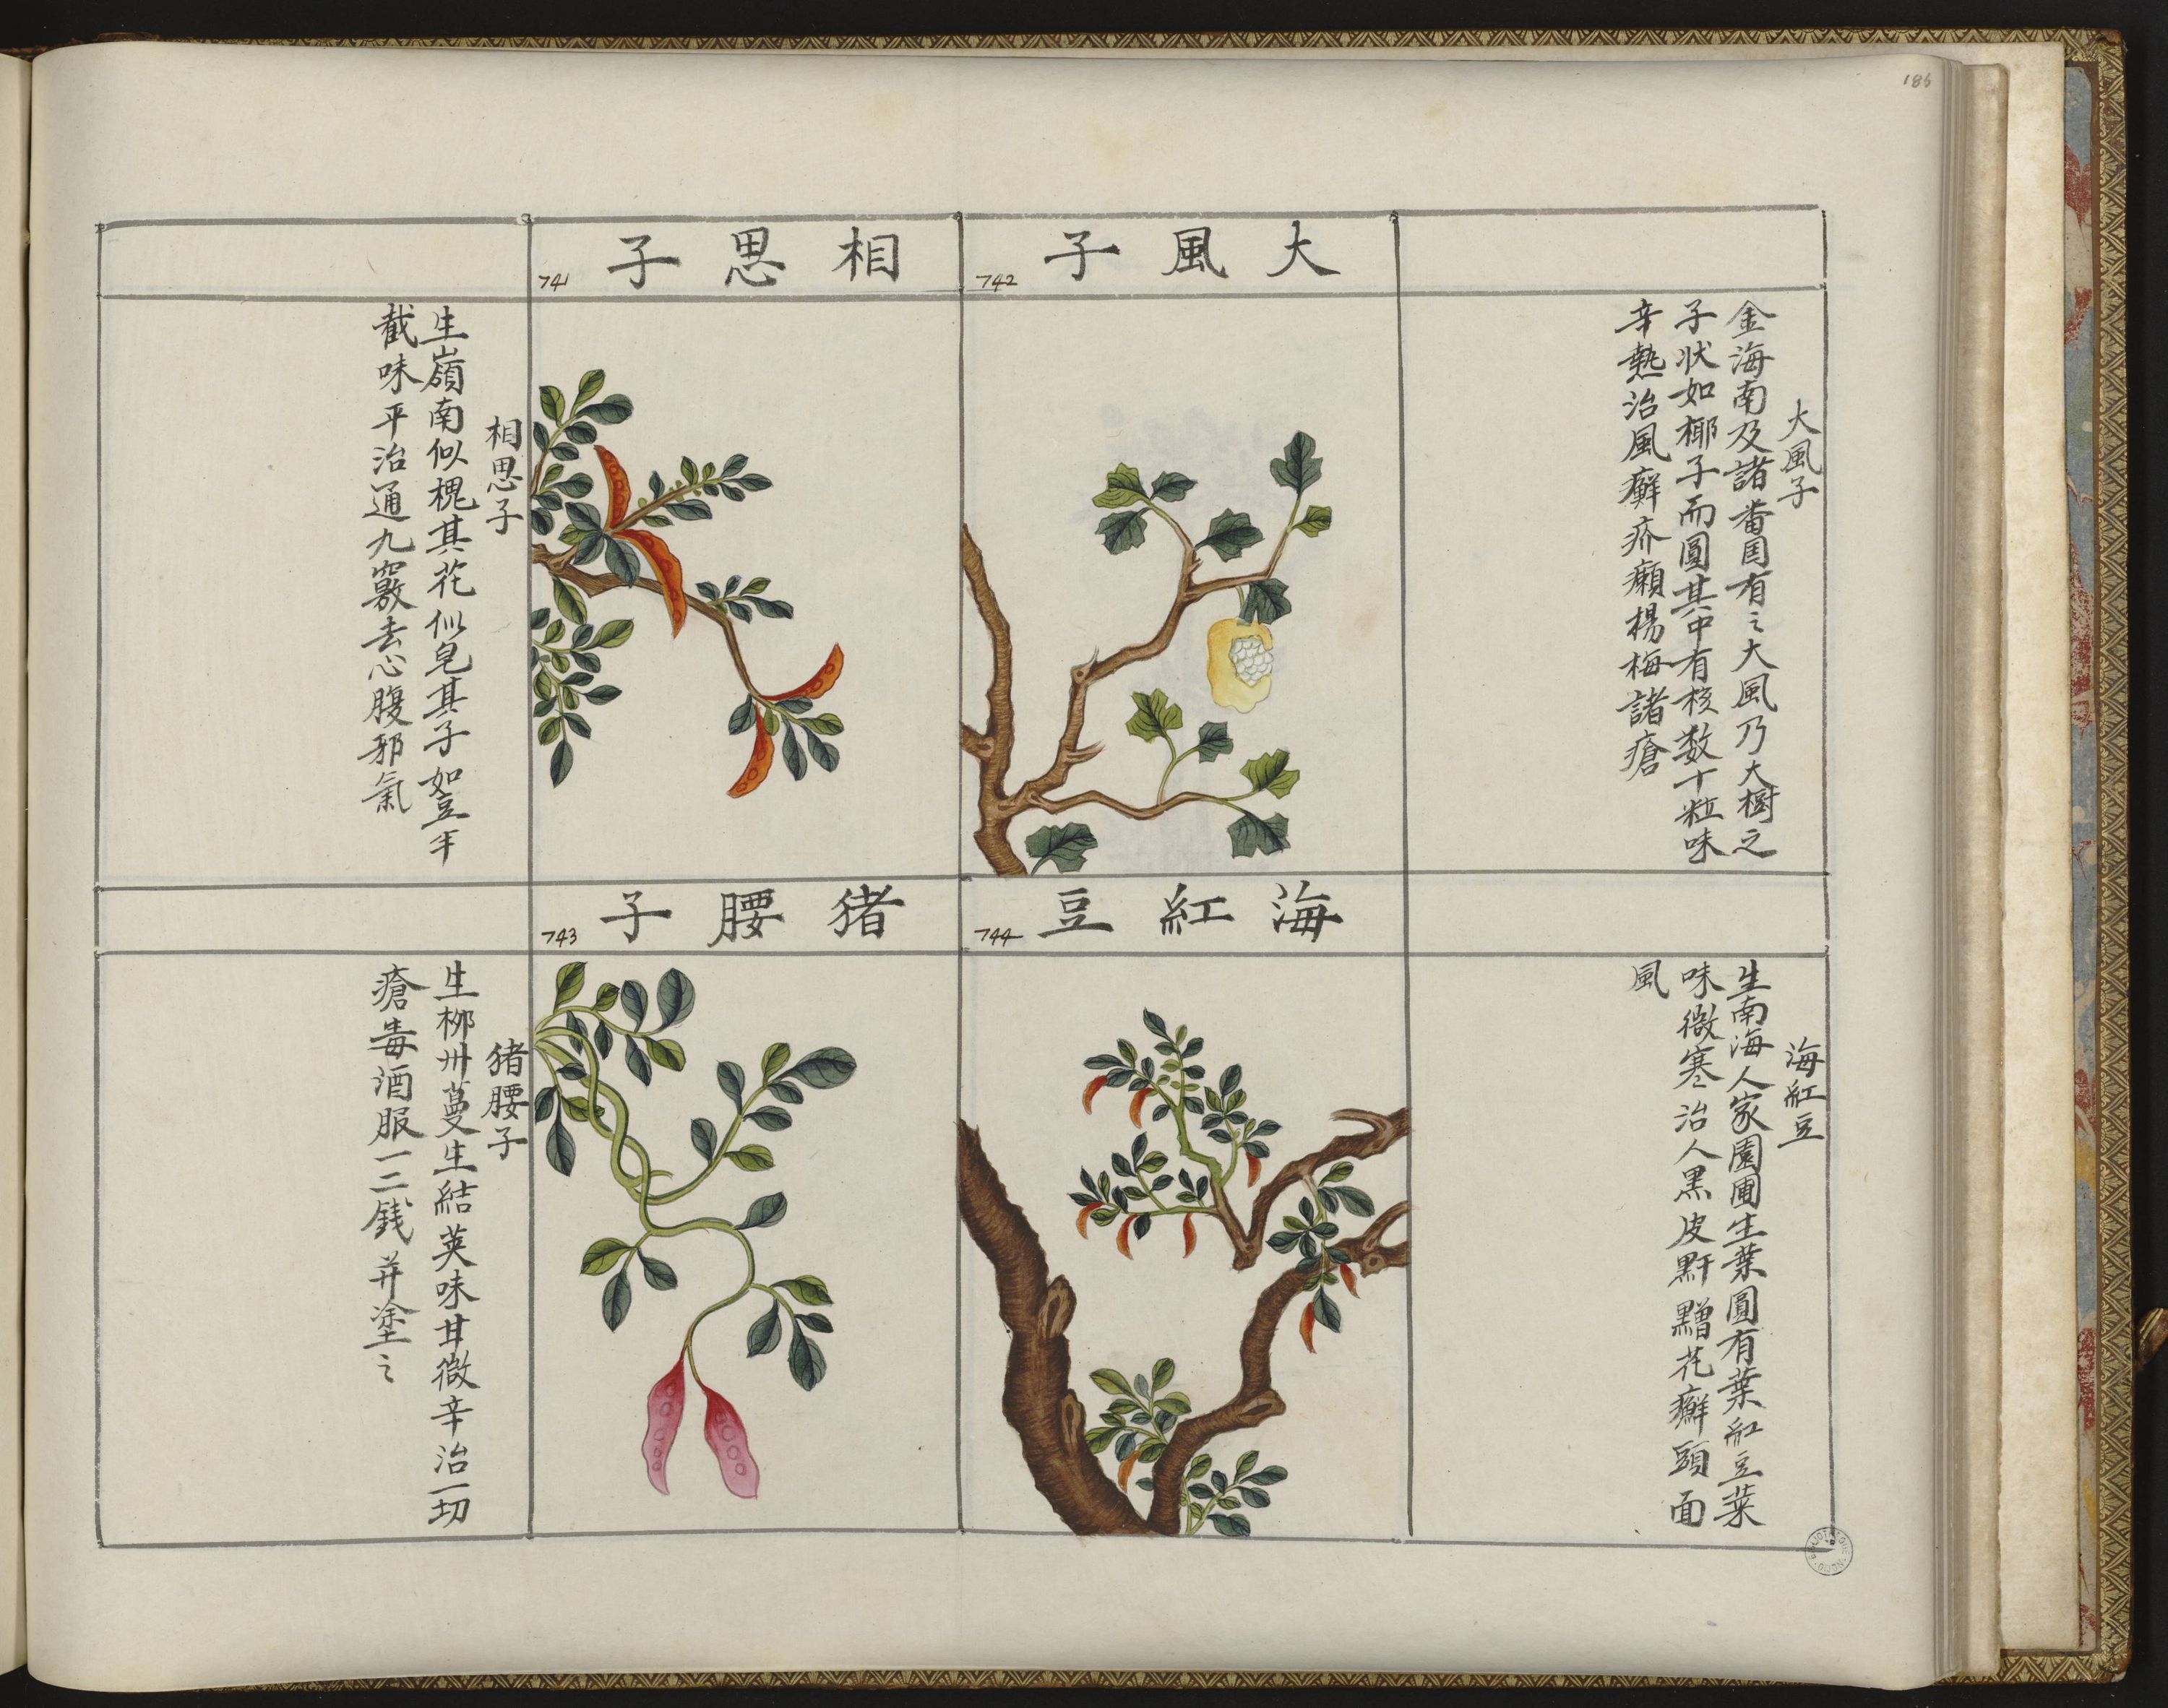 186
大風子
742
大風子
金海南及諸畨国有之大風乃大樹之
子状如椰子而圓其中有核数十粒味
辛熱治風癬疥癩楊梅諸瘡
相思子
741
相思子
生嶺南似槐其花似皂其子如豆半
截味平治通九竅去心腹邪氣
海紅豆
744
海紅豆
生南海人家園圃生葉圓有葉紅豆葉
味微寒治人黑皮䵟黵花癬頭面
風
猪腰子
743
猪腰子
生栁州蔓生結莢味甘微辛治一切
瘡毒酒服一二銭并塗之